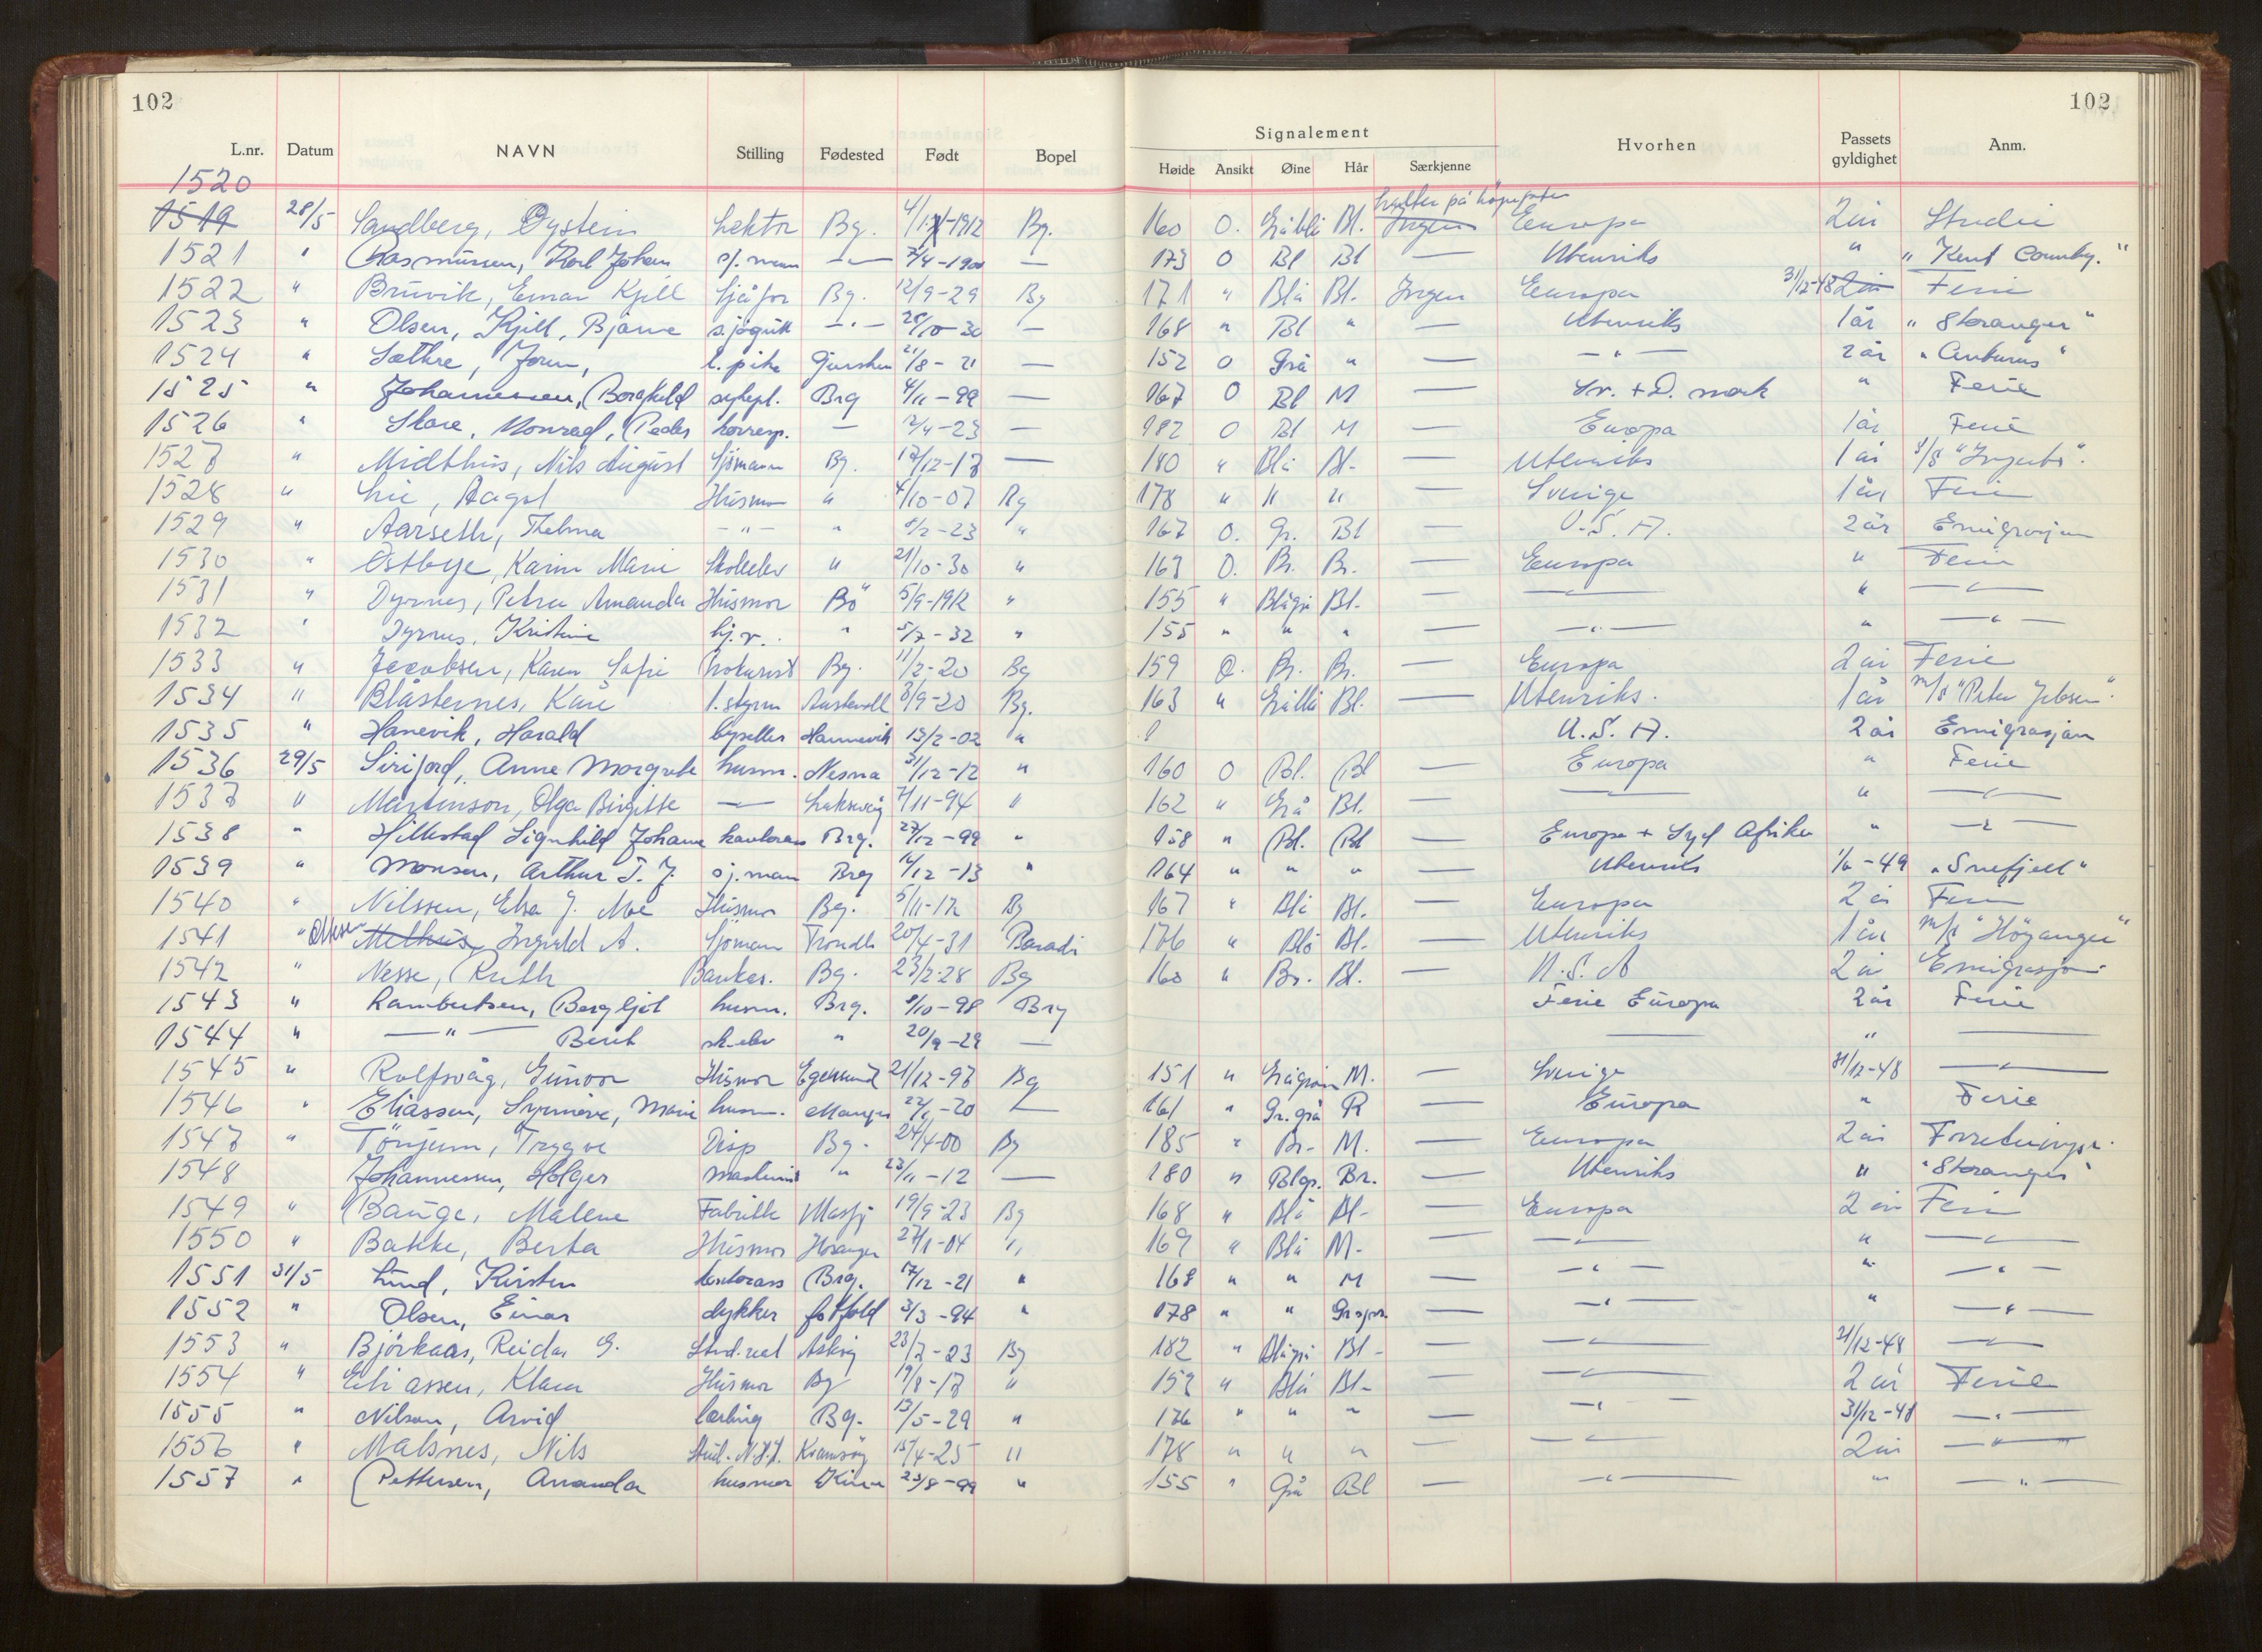 102 102
Signalement
L.nr. Datum NAVN Stilling Fødested Født Bopel Høide Ansikt Øine Hår Særkjenne Hvorhen Passets gyldighet Anm.
1520
1519 28/5 Sandberg, Øystein Lektor Bg. 1912 Bg. 160 O. Gråblå Bl. Ingen halter på Europa 2 år Studie
1521 " Rasmussen, Karl Johan sj.mann — 7/4-1900 — 173 O Bl Bl — Utenriks " "Kent County."
1522 " Bruvik, Einar Kjell Sjåfør Bg. 12/9-29 Bg 171 " Blå Bl. Ingen Europa 31/12-48 2 år Ferie
1523 " Olsen, Kjell, Bjarne sjøgutt — " — 28/10-30 — 168 " Bl " — Utenriks 1 år "Storanger"
1524 " Sæthre, Jorun, l. pike Gjursken 21/8-21 — 152 O Grå " — — " — 2 år
1525 " Johannessen, Borghild Brg 4/11-99 — 167 O Bl M — Sv. + D.mark " Ferie
1526 " Skare, Monrad, Peder korresp. — 2/4-23 — 182 O Bl M — Europa 1 år Ferie
1527 " Midthus, Nils August Sjømann Bg. 17/12-17 — 180 " Blå Bl. — Utenriks 1 år
1528 " Lie, Aagot Husmor " 4/10-07 Bg 178 " " " — Sverige 1 år Ferie
1529 " Aarseth, Thelma — " — " 5/2-23 " 167 O. Gr. Bl — U.S.A. 2 år Emigrasjon
1530 " Østbye, Karin Marie Skoleelev " 21/10-30 " 163 O. Br. Br. — Europa " Ferie
1531 " Dyrnes, Petra Amanda Husmor Bø 5/9-1912 " 155 " Blågrå Bl. — — " — " — " —
1532 " Dyrnes, Kristine hj.v. " 5/7-32 " 155 " " " — — " — " — " —
1533 " Jacobsen, Karen Sofie Prokurist Bg. 11/2-20 Bg 159 O. Br. Br. — Europa 2 år Ferie
1534 " Blåsternes, Kåre 1. styrm Austevoll 8/9-20 Bg. 163 " Gråblå Bl. — Utenriks. 1 år m/s "Peter Jebsen".
1535 " Hanevik, Harald Hannevik 13/2-02 " U.S.A. 2 år Emigrasjon
1536 29/5 Sirifjord, Anne Margrete husm. Nesna 31/12-12 " 160 O Bl. Bl — Europa " Ferie
1537 " Martinson, Olga Birgitte — Laksevåg 7/11-94 " 162 " Grå Bl. — — " — " — " —
1538 " Hillestad Signhild Johanne kontorass Brg. 27/12-99 " 158 " Bl. Bl — Europa + Syd Afrika " — " —
1539 " Monsen, Arthur T. J. sj.man Brg 14/12-13 " 164 " " " — Utenriks 1/6-49 "Snefjell"
1540 " Nilssen, Elsa J. Moe Husmor Bg. 5/11-12 Bg 167 " Blå Bl. — Europa 2 år Ferie
1541 " Melhus, Ingvald A. Sjømann Trondh 20/4-31 176 " Blå Bl. — Utenriks 1 år m/s "Høyanger"
1542 " Nesse, Ruth Bankas. Bg. 23/2-28 Bg 160 " Br. Bl. — U.S.A 2 år Emigrasjon
1543 " Lambertsen, Bergljot husm. Brg. 9/10-98 Brg Ferie Europa 2 år Ferie
1544 " — " — Berit sk-elev " 20/9-29 — — " —
1545 " Rolfsvåg, Gunvor Husmor Egersund 21/12-97 Bg 151 " Grågrøn M. — Sverige 31/12-48 — " —
1546 " Eliassen, Synnøve, Marie husm. Manger 22/1-20 — 161 " Gr.grå R — Europa " Ferie
1547 " Tønjum, Trygve Disp Bg. 24/4-00 Bg 185 " Br- M. — Europa 2 år
1548 Johannessen, Holger maskinist " 23/11-12 — 180 " Blgr. Br. — Utenriks " "Storanger"
1549 " Bauge, Malene Fabrikk Masfj 19/9-23 Bg 168 " Blå Bl- — Europa 2 år Ferie
1550 " Bakke, Berta Husmor Hosanger 27/1-04 " 169 " Blå M- — — " — " — " —
1551 31/5 Lund, Kirsten kontorass Brg. 17/12-21 " 168 " " M — — " — " — " —
1552 " Olsen, Einar dykker Østfold 3/3-94 " 178 " " — — " — " — " —
1553 " Björkaas, Reidar G. Stud.real Askøy 23/7-23 Bg 182 " Blågrå Bl- — — " — 31/12-48 — " —
1554 " Eliassen, Klara Husmor Bg 19/8-17 " 152 " Blå Bl- — — " — 2 år Ferie
1555 " Nilsen, Arvid lærling Bg. 13/5-29 " 176 " " " — — " — 31/12-48 — " —
1556 " Malsnes, Nils Stud. N.H.H. Kvamsøy 15/4-25 " 178 " " " — — " — 2 år — " —
1557 " Pettersen, Amanda husmor Kinn 23/8-99 " 155 " Grå Bl — — " — " — " —